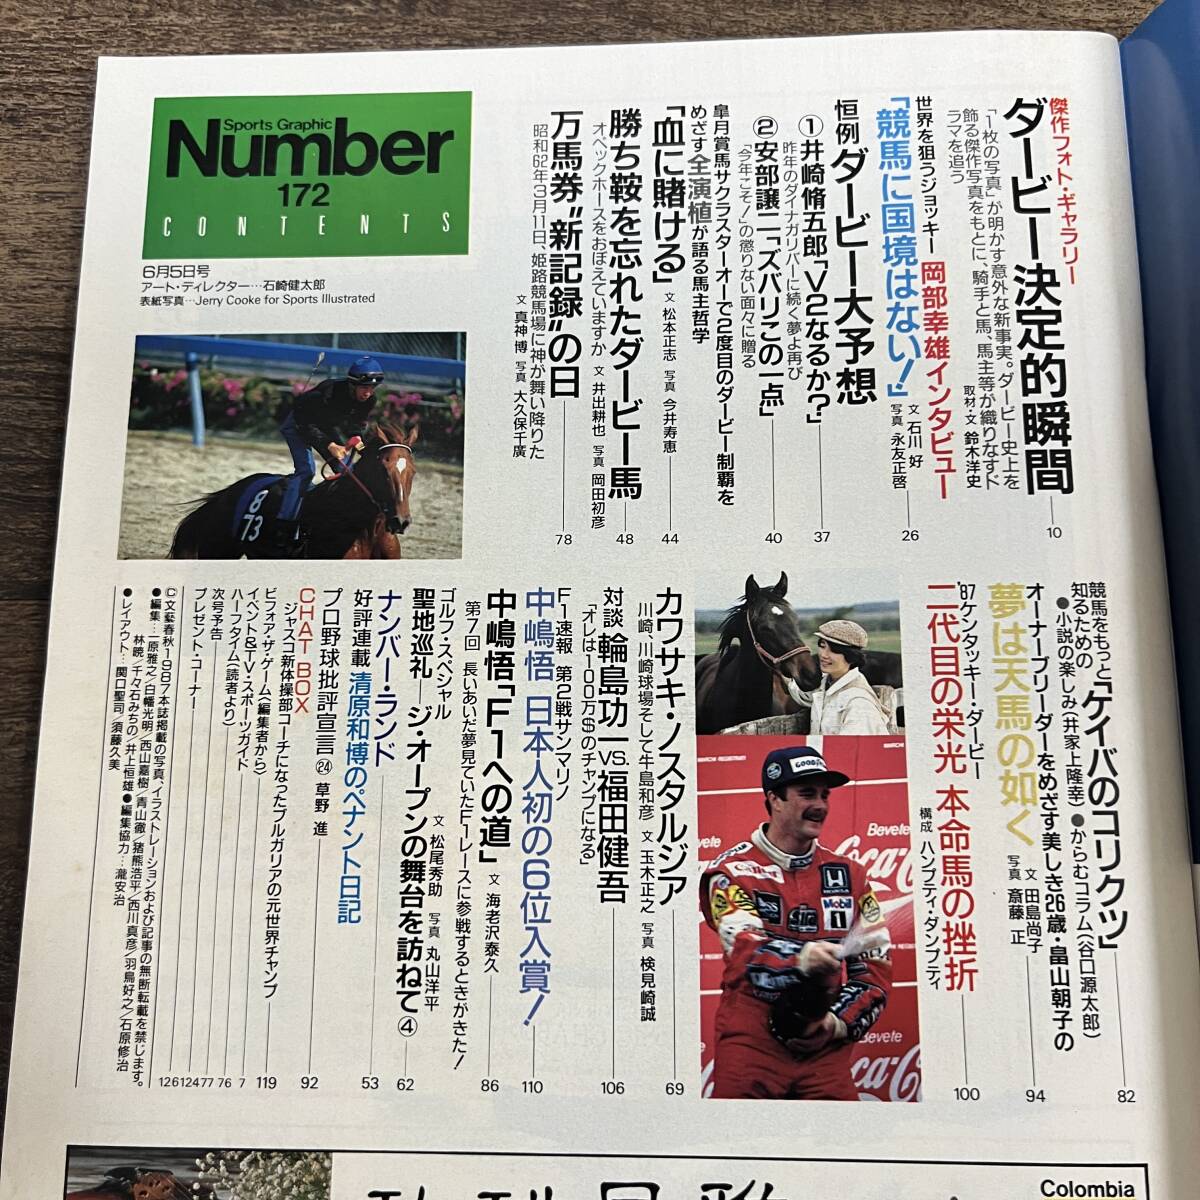 Sports Graphic
Number
172
CONTENTS
6月5日号
アート・ディレクター…石崎健太郎
表紙写真…Jerry Cooke for Sports Illustrated
傑作フォト・ギャラリー
ダービー決定的瞬間
「1枚の写真」が明かす意外な新事実。ダービー史上を
飾る傑作写真をもとに、騎手と馬、馬主等が織りなすド
ラマを追う
取材・文 鈴木洋史
10
世界を狙うジョッキー 岡部幸雄インタビュー
「競馬に国境はない!」
文 石川 好
写真 永友正啓
26
恒例ダービー大予想
①井崎脩五郎「V2なるか?」
昨年のダイナガリバーに続く夢よ再び
37
②安部譲二「ズバリこの一点」
「今年こそ!」の懲りない面々に贈る
40
皐月賞馬サクラスターオーで2度目のダービー制覇を
めざす全演植が語る馬主哲学
「血に賭ける」
文 松本正志 写真 今井寿恵
44
勝ち鞍を忘れたダービー馬
オペックホースをおぼえていますか 文 井出耕也 写真 岡田初彦
48
万馬券“新記録”の日
昭和62年3月11日、姫路競馬場に神が舞い降りた
文 真神 博 写真 大久保千廣
78
競馬をもっと
知るための「ケイバのコリクツ」
●小説の楽しみ(井家上隆幸)●からむコラム(谷口源太郎)
82
オーナーブリーダーをめざす美しき26歳・畠山朝子の
夢は天馬の如く
文 田島尚子
写真 斎藤 正
94
'87ケンタッキー・ダービー
二代目の栄光 本命馬の挫折
構成 ハンプティ・ダンプティ
100
カワサキ・ノスタルジア
川崎、川崎球場そして牛島和彦 文 玉木正之 写真 検見崎誠
69
対談 輪島功一VS.福田健吾
「オレは100万$のチャンプになる」
106
F1速報 第2戦サンマリノ
中嶋悟 日本人初の6位入賞!
110
中嶋悟「F1への道」 文 海老沢泰久
第7回 長いあいだ夢見ていたF1レースに参戦するときがきた!
86
ゴルフ・スペシャル
聖地巡礼―ジ・オープンの舞台を訪ねて④
文 松尾秀助 写真 丸山洋平
62
ナンバー・ランド
好評連載 清原和博のペナント日記
53
プロ野球批評宣言㉔ 草野 進
92
CHAT BOX
ジャスコ新体操部コーチになったブルガリアの元世界チャンプ
119
ビフォア・ザ・ゲーム(編集者から)
7
イベント&TV・スポーツガイド
76
ハーフタイム(読者より)
77
次号予告
124
プレゼント・コーナー
126
©文藝春秋1987 本誌掲載の写真、イラストレーションおよび記事の無断転載を禁じます。
●編集…二原雅之/白幡光明/西山嘉樹/青山徹/猪熊浩平/西川真彦/羽鳥好之/石原修治
林暁/千々石みちの/井上恒雄●編集協力…瀧安治
●レイアウト…関口聖司/須藤久美
GOODYEAR
Canon
HONDA
Mobil
1
Bevete
Coca-Cola
Bevete
Coca-Cola
8
73
Colombia